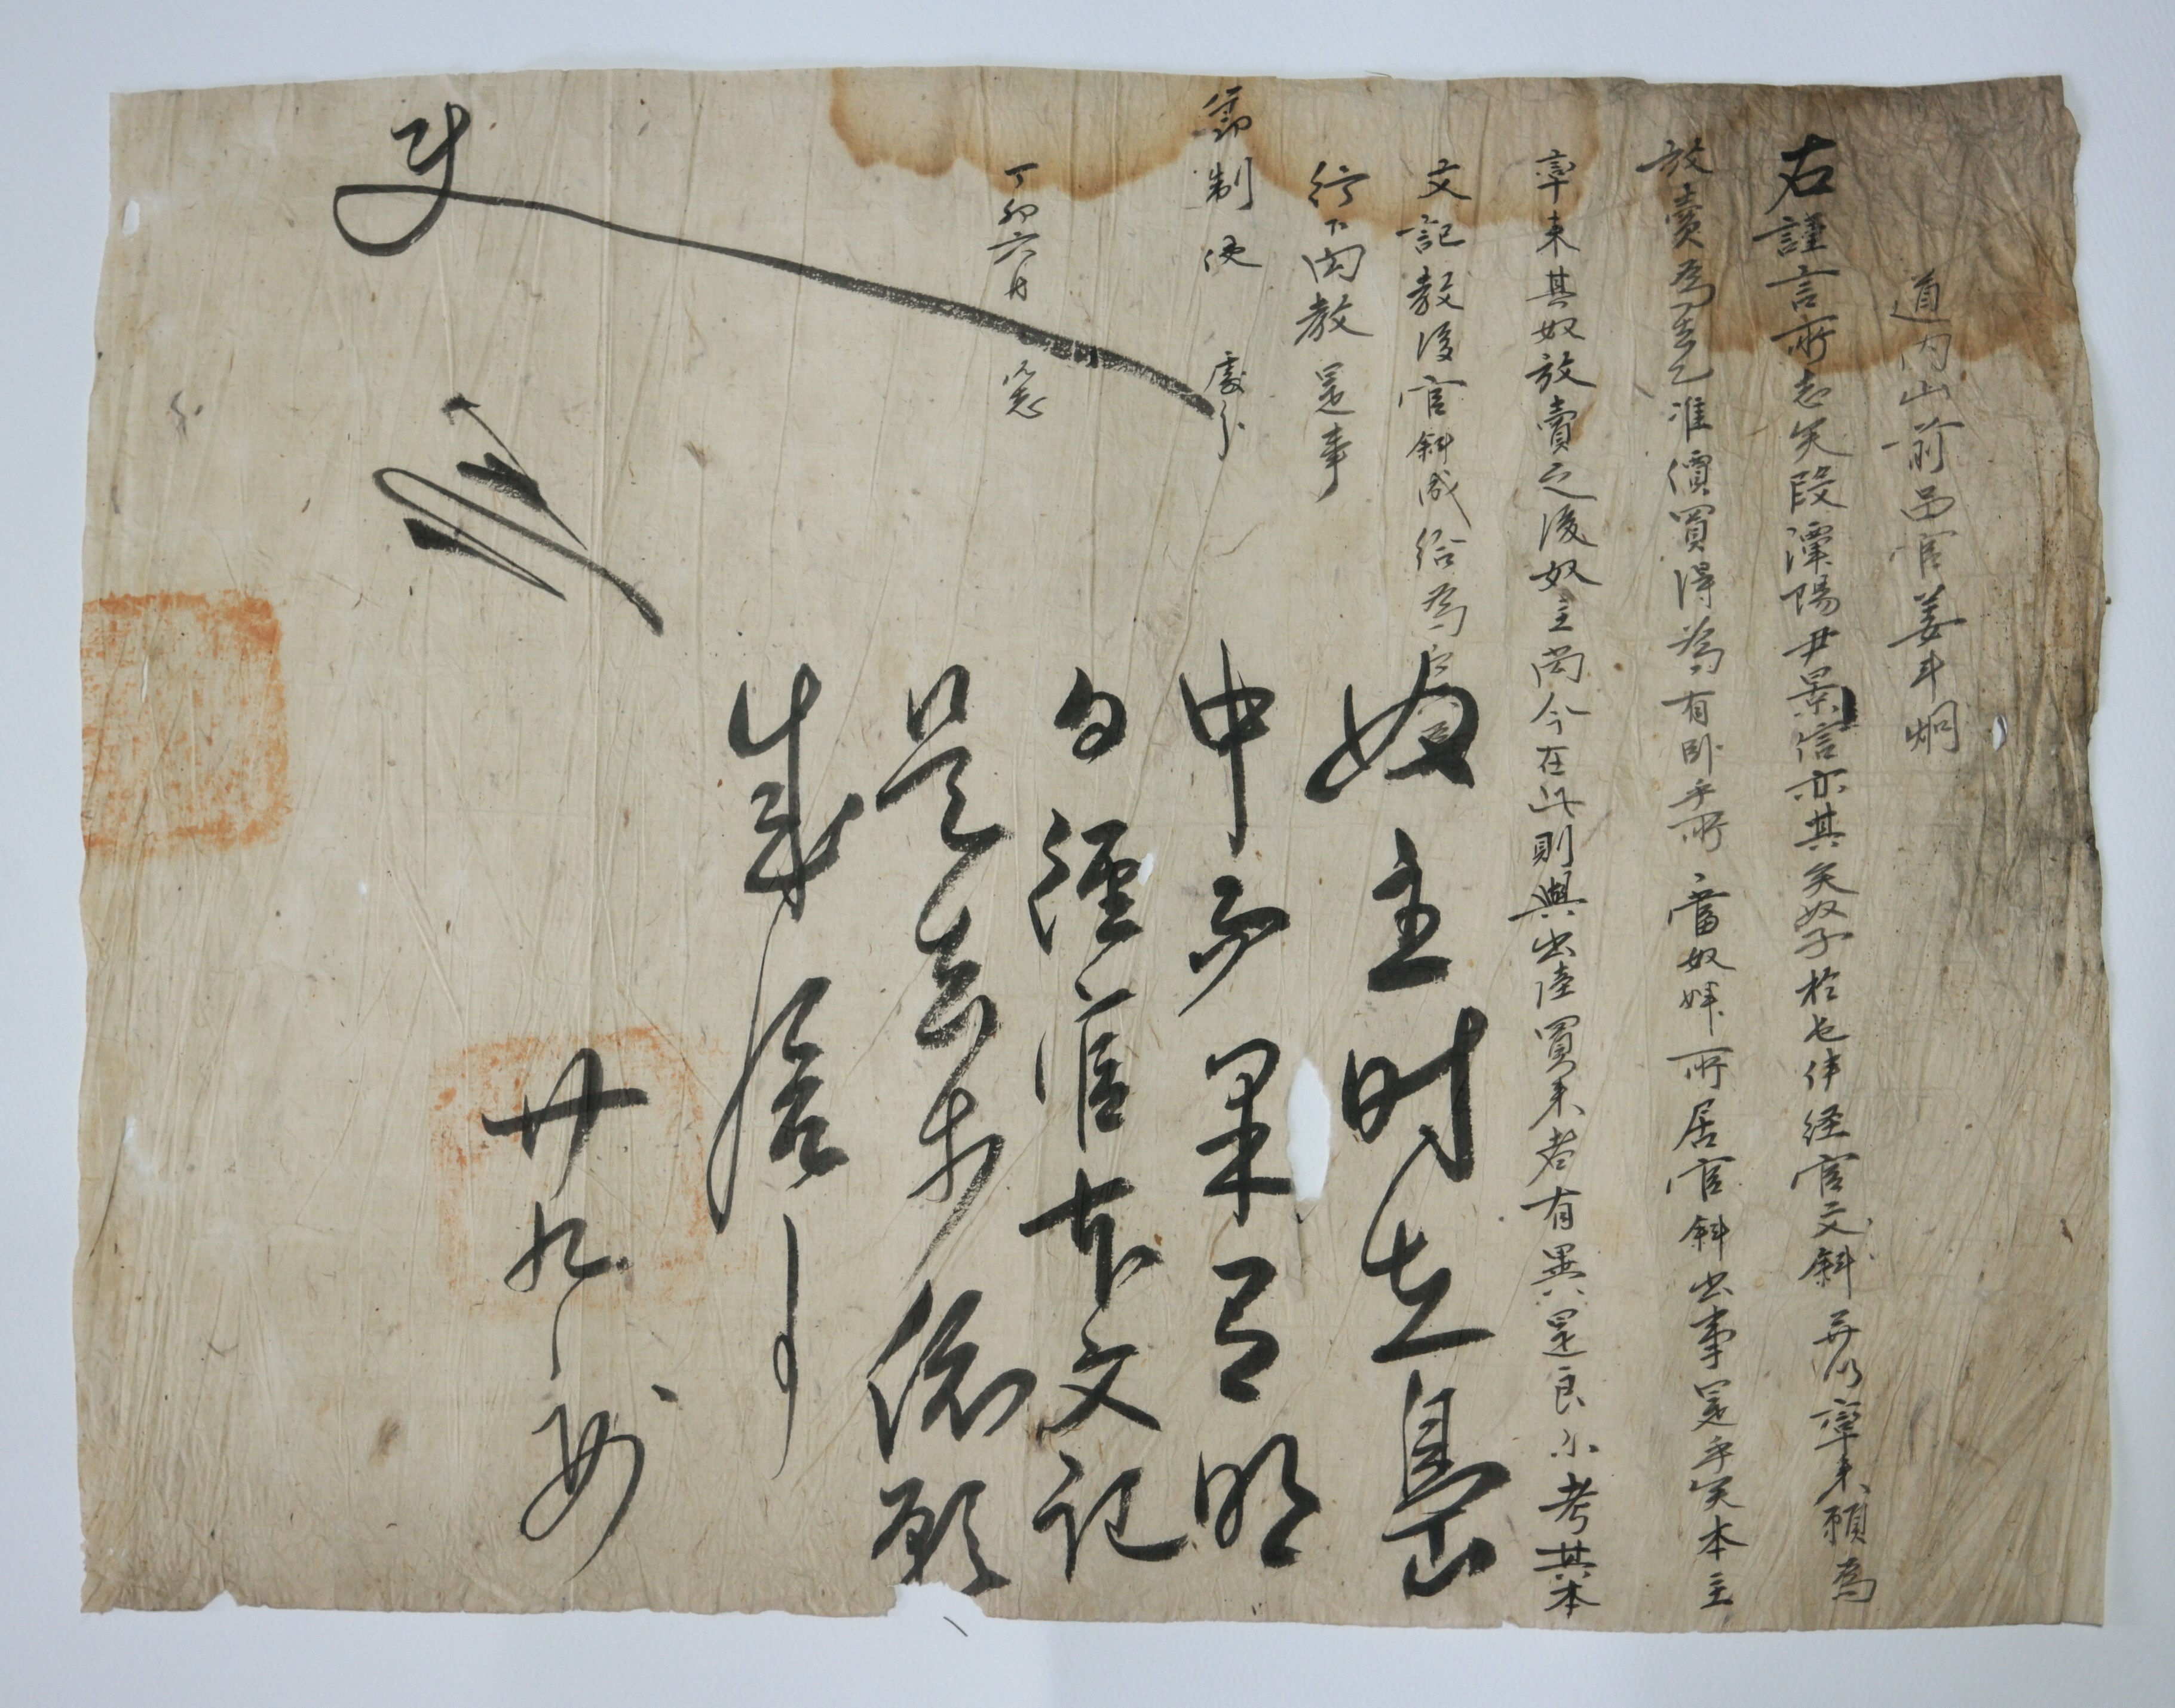 道內山前居官姜斗炯
右謹言所志矣段潭陽尹景信亦其矣奴子於屯伴経官文斜并以率來願爲
放賣爲去乙准價買得爲有卧乎所當奴婢所居官斜出事是乎矣本主
率來其奴放賣之後奴主尚今在此則與出陸買來者有異是良尒考其本
文記教後官斜成給爲
行下向教是事
節制使 處分
丁卯六月 日
奴主時在島
中而果有明
白經官本文記
是去等依願
成給事
廿九日
使